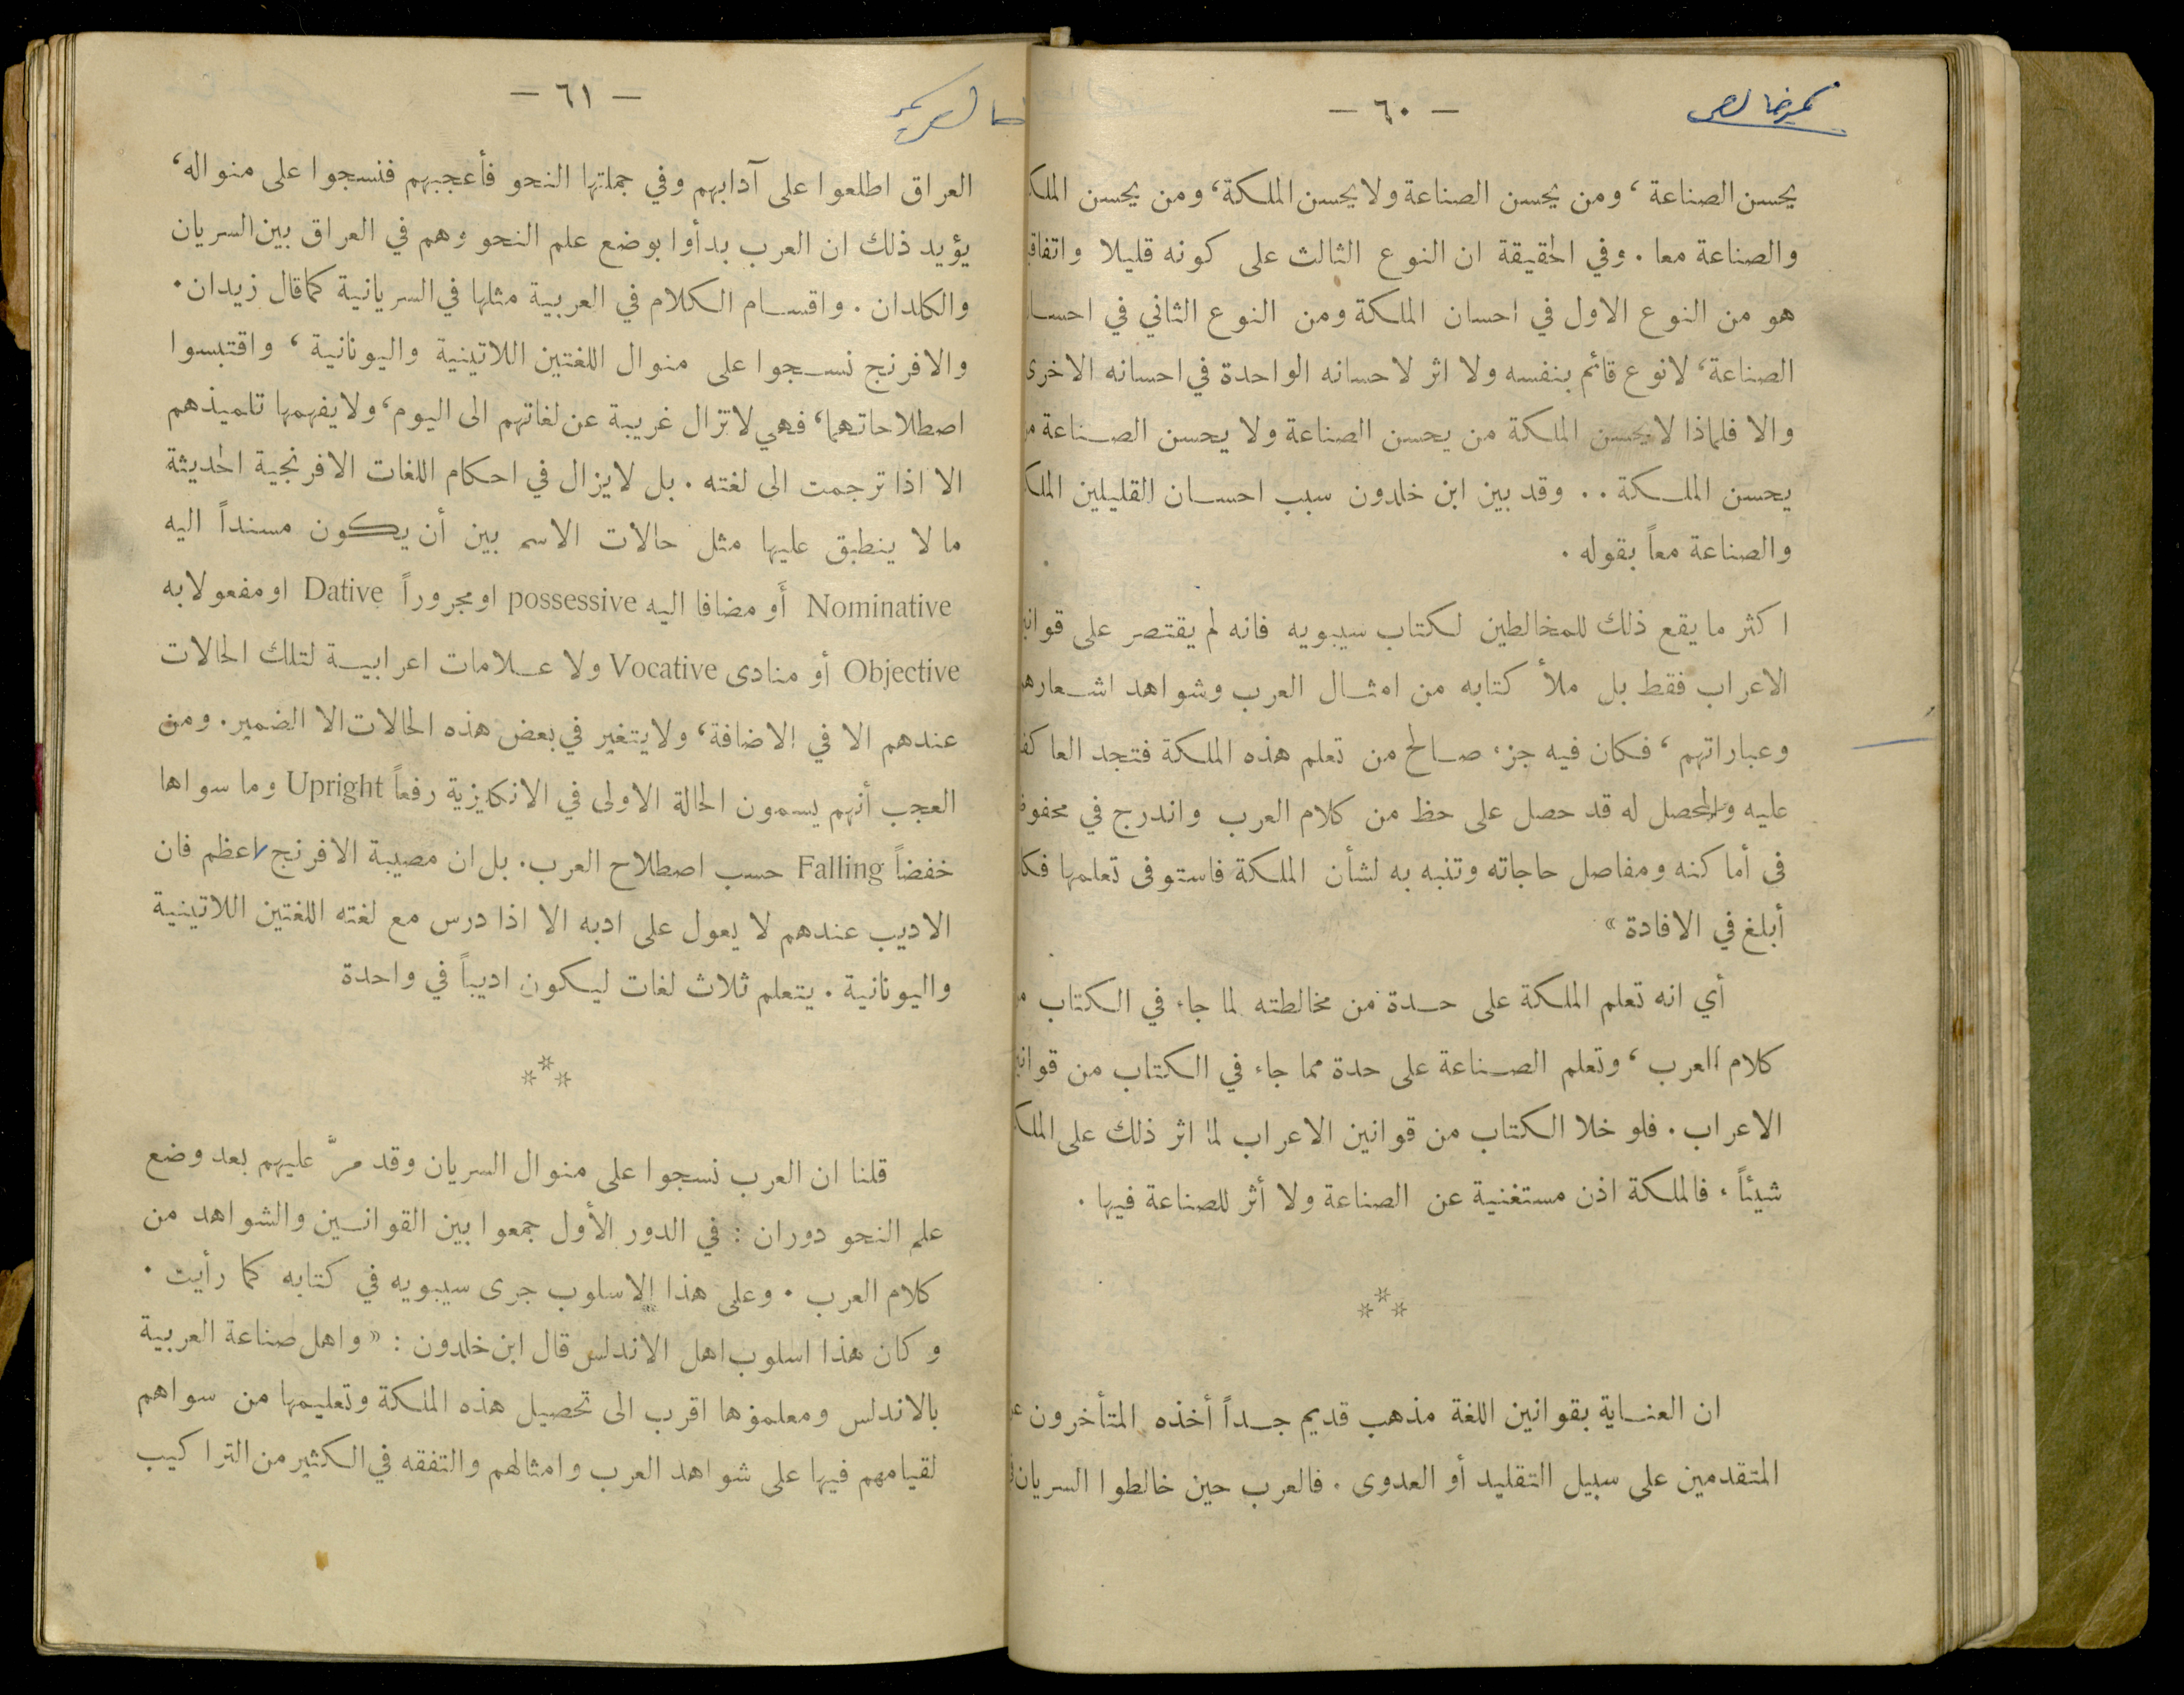 — ٦٠ —
يحسن الصناعة ، ومن يحسن الصناعة ولا يحسن الملكة ، ومن يحسن الملك
والصناعة معا . وفي الحقيقة ان النوع الثالث على كونه قليلا واتفاق
هو من النوع الاول في احسان الملكة ومن النوع الثاني في احسا
الصناعة ، لا نوع قائم بنفسه ولا اثر لاحسانه الواحدة في احسانه الاخرى
والا فلماذا لا يحسن الملكة من يحسن الصناعة ولا يحسن الصناعة م
يحسن الملكة . . وقد بين ابن خلدون سبب احسان القليلين الملك
والصناعة معاً بقوله .
اكثر ما يقع ذلك للمخالطين لكتاب سيبويه فانه لم يقتصر على قوان
الاعراب فقط بل ملأ كتابه من امثال العرب وشواهد اشعاره
وعباراتهم ، فكان فيه جزء صالح من تعلم هذه الملكة فتجد العاكف
عليه والمحصل له قد حصل على حظ من كلام العرب واندرج في محفوظ
في أماكنه ومفاصل حاجاته وتنبه به لشأن الملكة فاستوفى تعلمها فكا
أبلغ في الافادة »
أي انه تعلم الملكة على حدة من مخالطته لما جاء في الكتاب م
كلام العرب ، وتعلم الصناعة على حدة مما جاء في الكتاب من قوان
الاعراب . فلو خلا الكتاب من قوانين الاعراب لما اثر ذلك على الملك
شيئاً ، فالملكة اذن مستغنية عن الصناعة ولا أثر للصناعة فيها .
***
ان العناية بقوانين اللغة مذهب قديم جداً أخذه المتأخرون ع
المتقدمين على سبيل التقليد أو العدوى . فالعرب حين خالطوا السريان
— ٦١ —
العراق اطلعوا على آدابهم وفي جملتها النحو فأعجبهم فنسجوا على منواله ،
يؤيد ذلك ان العرب بدأوا بوضع علم النحو وهم في العراق بين السريان
والكلدان . واقسام الكلام في العربية مثلها في السريانية كما قال زيدان .
والافرنج نسجوا على منوال اللغتين اللاتينية واليونانية ، واقتبسوا
اصطلاحاتهما ، فهي لا تزال غريبة عن لغاتهم الى اليوم ، ولا يفهمها تلميذهم
الا اذا ترجمت الى لغته . بل لا يزال في احكام اللغات الافرنجية الحديثة
ما لا ينطبق عليها مثل حالات الاسم بين أن يكون مسنداً اليه
Nominative أو مضافا اليه possessive او مجروراً Dative او مفعولا به
Objective أو منادى Vocative ولا علامات اعرابية لتلك الحالات
عندهم الا في الاضافة ، ولا يتغير في بعض هذه الحالات الا الضمير . ومن
العجب أنهم يسمون الحالة الاولى في الانكليزية رفعاً Upright وما سواها
خفضاً Falling حسب اصطلاح العرب . بل ان مصيبة الافرنج اعظم فان
الاديب عندهم لا يعول على ادبه الا اذا درس مع لغته اللغتين اللاتينية
واليونانية . يتعلم ثلاث لغات ليكون اديباً في واحدة
***
قلنا ان العرب نسجوا على منوال السريان وقد مرَّ عليهم بعد وضع
علم النحو دوران : في الدور الأول جمعوا بين القوانين والشواهد من
كلام العرب . وعلى هذا الاسلوب جرى سيبويه في كتابه كما رأيت .
وكان هذا اسلوب اهل الاندلس قال ابن خلدون : « واهل صناعة العربية
بالاندلس ومعلموها اقرب الى تحصيل هذه الملكة وتعليمها من سواهم
لقيامهم فيها على شواهد العرب وامثالهم والتفقه في الكثير من التراكيب